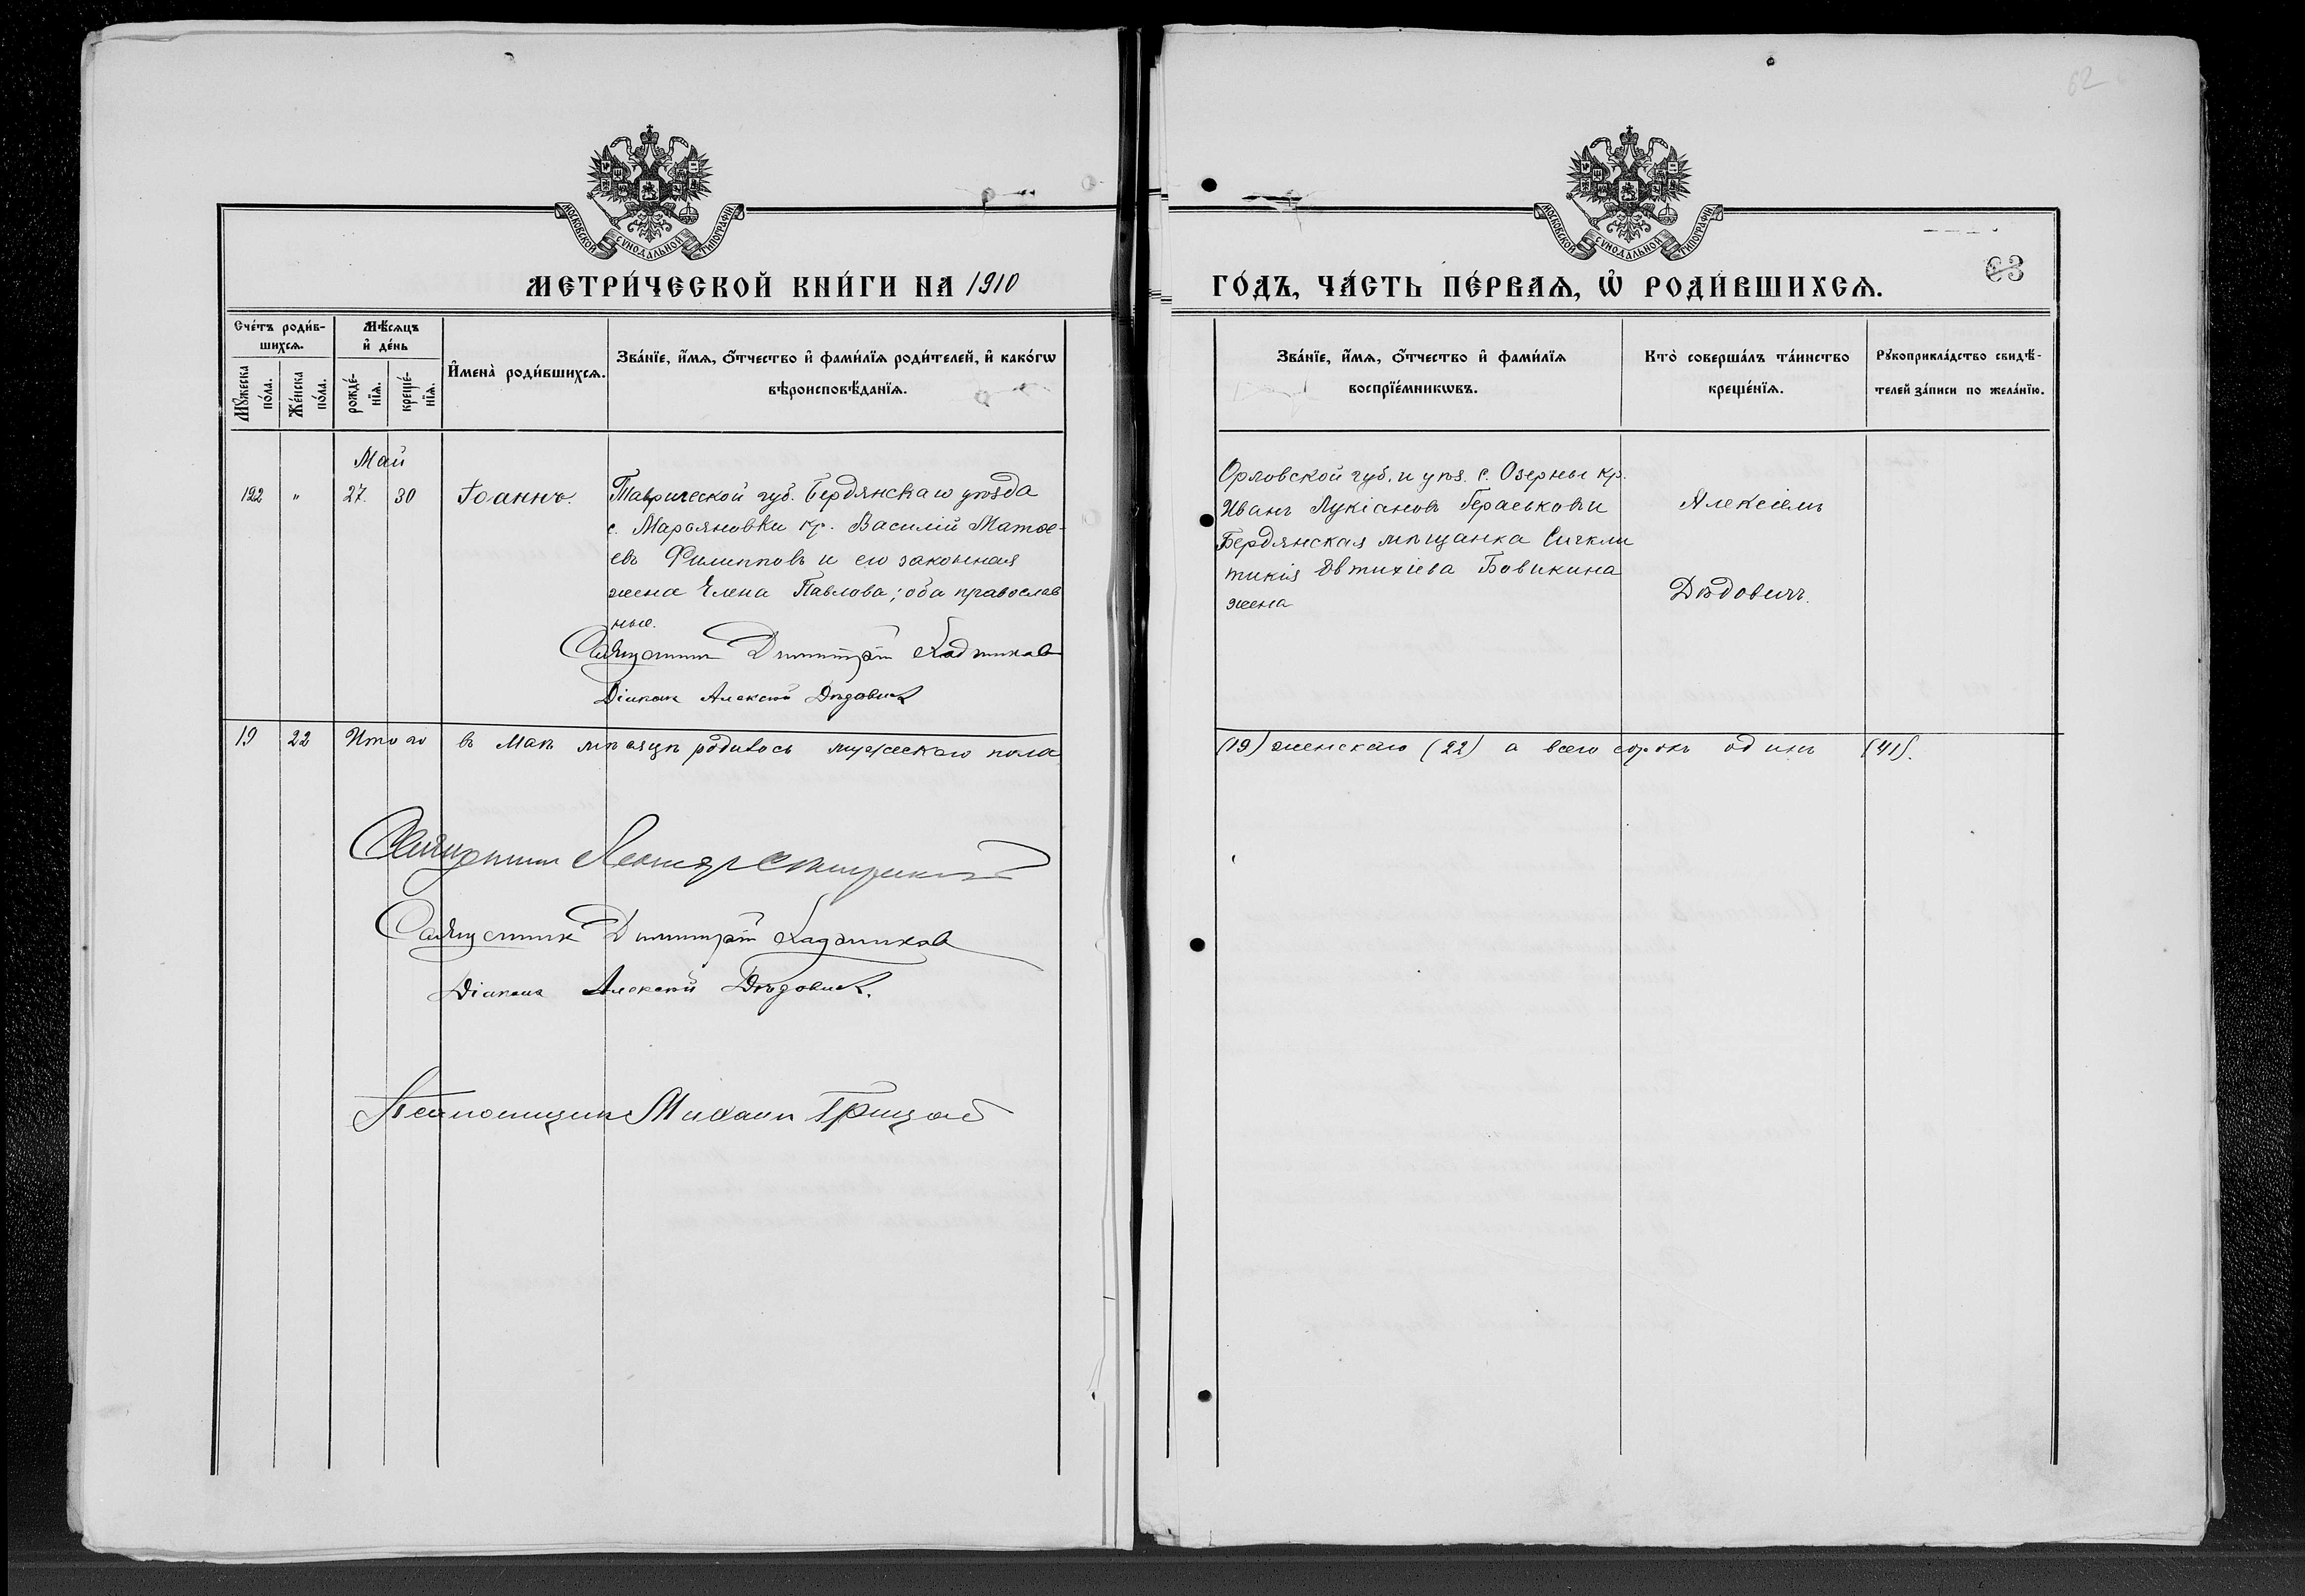 62
МОСКОВСКОЙ СѴНОДАЛЬНОЙ ТИПОГРАФІИ
МОСКОВСКОЙ СѴНОДАЛЬНОЙ ТИПОГРАФІИ
МЕТРИ́ЧЕСКОЙ КНИ́ГИ НА 1910
ГО́ДЪ, ЧА́СТЬ ПЕ́РВАѦ, Ѽ РОДИ́ВШИХСѦ.
63
Сче́тъ роди́в-
шихсѧ.
Мꙋжеска по́ла.
Же́нска по́ла.
Мѣ́сѧцъ
и҆ де́нь
рожде́-
нїѧ.
креще́-
нїѧ.
И҆мена̀ роди́вшихсѧ.
Зва́нїе, и҆́мѧ, ѻ҆́тчество и҆ фами́лїѧ роди́телей, и҆ како́гѡ
вѣроисповѣ́данїѧ.
Зва́нїе, и҆́мѧ, ѻ҆́тчество и҆ фами́лїѧ
воспрїе́мникѡвъ.
Кто̀ соверша́лъ та́инство
креще́нїѧ.
Рꙋкоприкла́дство свидѣ́-
телей за́писи по жела́нїю.
Май
122 " 27. 30 Іоаннъ.
Таврической губ. Бердянскаго уѣзда
с. Марьяновки кр. Василій Матѳе-
евъ Филипповъ и его законная
жена Елена Павлова; оба православ
ные.
Священник Димитрій
Діаконъ Алексій Дѣдович
Орловской губ. и уѣз. с. Озерны кр.
Иванъ Лукіановъ Гераськовъ и
Бердянская мѣщанка Сигкли
тикія Евтихіева Бовикина
жена
Алексіемъ
Дѣдовичъ.
19 22 Итого въ Маѣ мѣсяцѣ родилось мужескаго пола
(19) женскаго (22) а всего сорокъ одинъ (41).
Священник
Священник Димитрій
Діаконъ Алексій Дѣдович.
Псаломщикъ Михаилъ